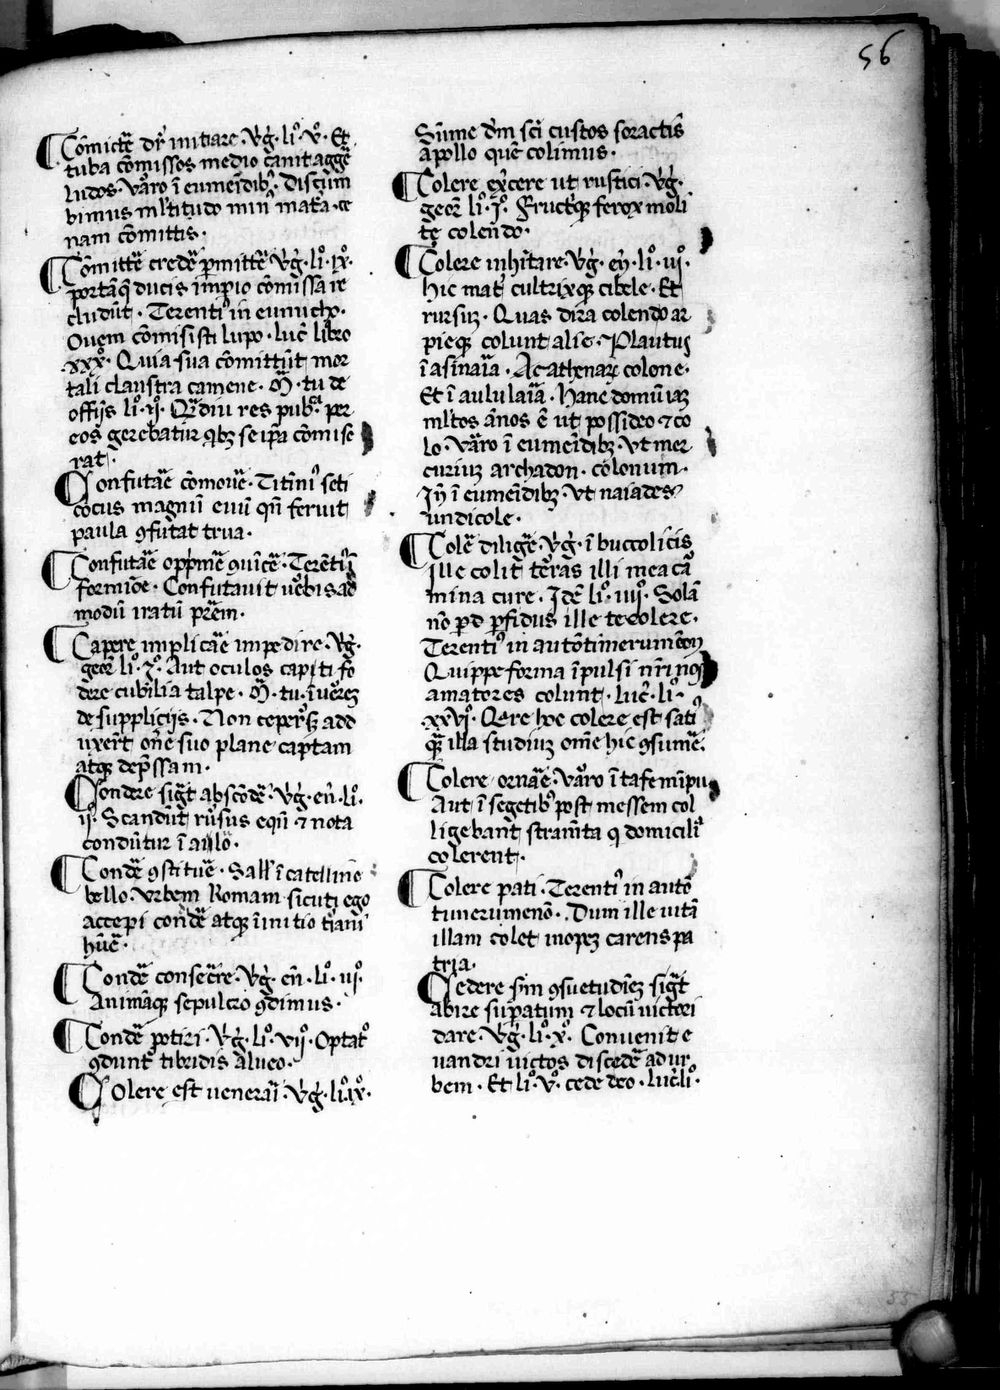 56
Cōmictē dr̄ initiare · vg̊ · liº · vº · Et
tuba cōmissos medio canit aggē
ludos · Vāro ī eumēdibꝫ · Discūm
bimus ml̄titudo min̄ mat̄a · ce
nam cōmittis ·
Cōmittē credē ꝑmittē vg̊ · liº · ixº ·
portāqꝫ ducis īmpio cōmissa re
cludūt · Terentiꝰ in eunucho ·
Ouem cōmisisti lupo · luc̄ libro
xxxº · Quia sua cōmittūt mor
tali claustra camene · M̄ · tu de
offiīs liº · ijº · Qᷓdiu res pubᷓ · per
eos gerebatur qbꝫ se ip̄a cōmise
rat ·
Confutāe cōmouē · Titiniꝰ seti
cocus magnū enū qn̄ feruit
paula ꝯfutat trua ·
Confutāe opp̄mē ꝯuīcē · Terētiꝰ ī
formiōe · Confutauit uēbis ad
modū iratū prēm ·
Capere implicāe impedire · vg̊ ·
georᷓ liº · jº · Aut oculos capiti fo
dere cubilia talpe · M̄ · tu · ī uērez
de suppliciis · Non ceper̄t add
uxer̄t om̄e suo plane captam
atqꝫ dep̄ssam ·
Condere sigᷓt abscōdē · vg̊ · en̄ · liº ·
ijº · Scandūt rūsus equū & nota
condūtur ī aluo ·
Condē ꝯstituē · Sall̄ ī catelline
bello · urbem Romam sicuti ego
accepi condē atqꝫ ī initio tᷓiani
hūe ·
Condē consecrē · vg̊ · en̄ · liº · iijº ·
Animāqꝫ sepulcro ꝯdimus ·
Condē potiri · vg̊ · liº · vijº · Optatº
ꝯdunt tibridis alueo ·
Colere est uenerāi · vg̊ · liº · ixº ·
Sūme dm̄ sci custos soractis
apollo quē colimus ·
Colere exc̄ere ut rustici · vg̊ ·
georᷓ liº · jº · Fructqꝫ ferox moli
te colendo ·
Colere inhitare · vg̊ · en̄ · liº · iijº ·
hic mat̄ cultrixqꝫ cibele · Et
rursuꝫ · Quas dira colendo ar
pieqꝫ colunt alie · Plautus
ī asinaīa · Ac athenaꝝ colone ·
Et ī aulularīa · Hanc domū iaꝫ
ml̄tos ānos ē ut possideo & co
lo · Vāro ī eumēdibꝫ · Ut mer
curiuꝫ archadon · colonum ·
Jn̄ ī eumēdibꝫ · Ut naiades
undicole ·
Colē diligē · vg̊ · ī buccolicis
Ille colit tēras illi mea cā
mina cure · Idē liº · iiijº · Solā
nō pd ꝑfidus ille te colere ·
Terentiꝰ in autōtimerumēon
Quippe forma īpulsi nr̄i nos
amatores colunt · luc̄ · liº ·
xxviº · Qrere hoc colere est satiꝰ
qᷓ illa studiuꝫ om̄e hic ꝯsumē ·
Colere ornāe · Vāro ī tafemīpu
Aut ī segetibꝰ post messem col
ligebant stram̄ta q domicilia
colerent ·
Colere pati · Terentiꝰ in auto
timerumenō · Dum ille uitā
illam colet inopeꝫ carens pa
tria ·
Cedere sm̄ ꝯsuetudīeꝫ sigᷓt
abire suꝑatum & locū uictori
dare · vg̊ · liº · xº · Conuenit e
uandri uictos discedē ad ur
bem · Et liº · vº · cede deo · luc̄ liº ·